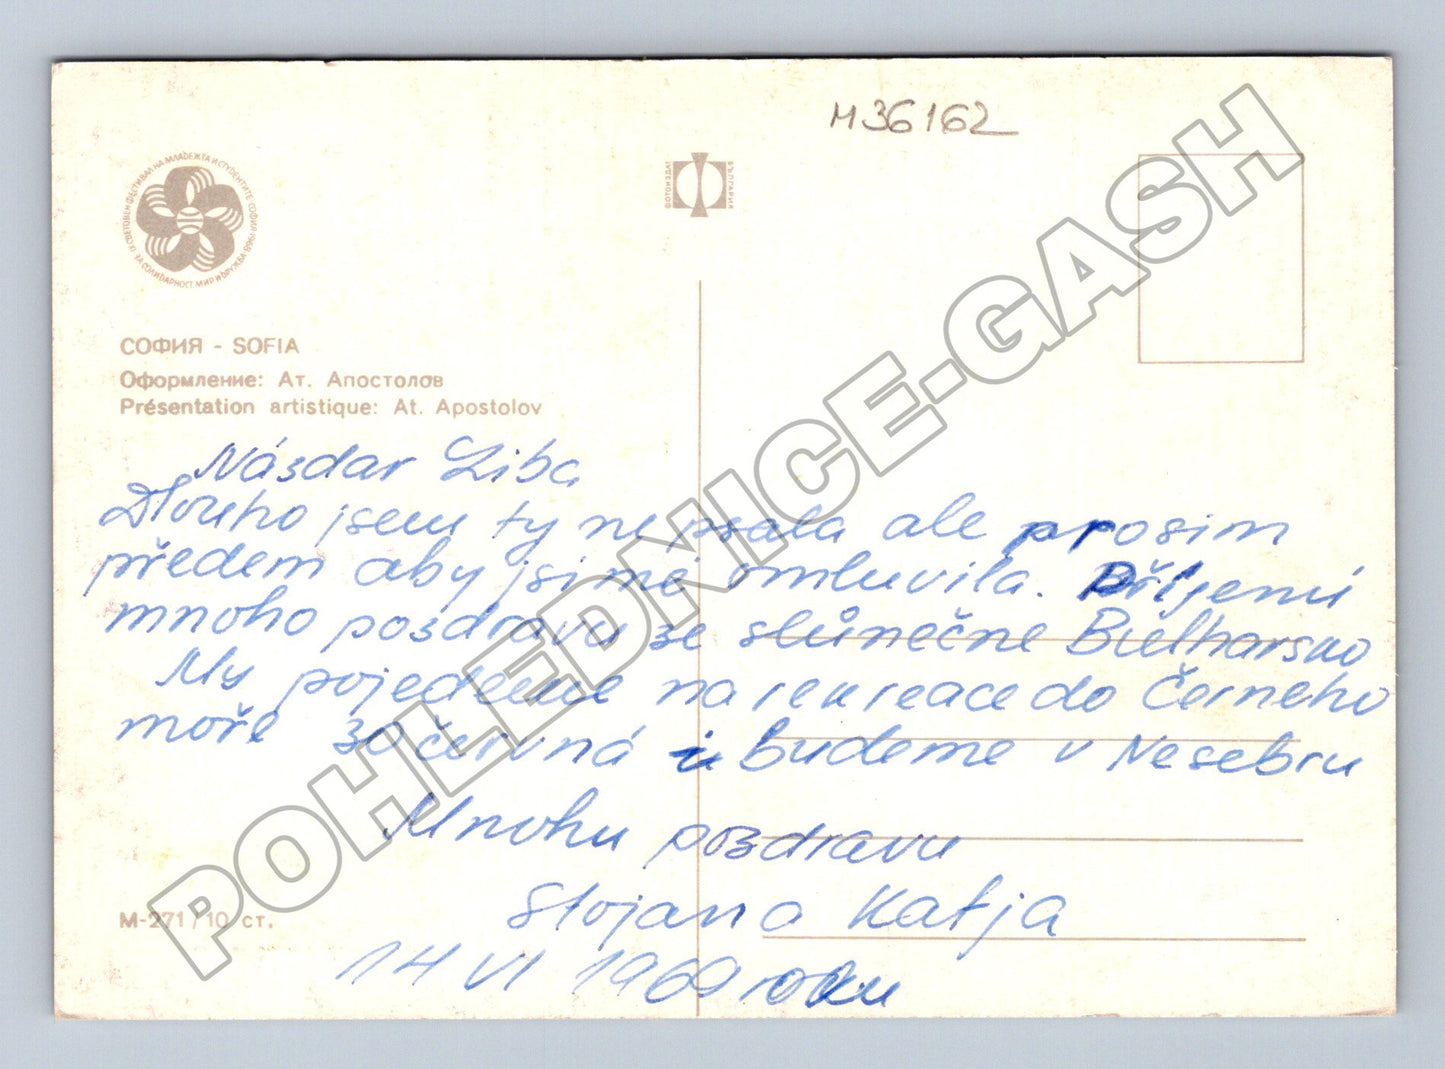 м36162
IX СВЕТОВЕН ФЕСТИВАЛ НА МЛАДЕЖТА И СТУДЕНТИТЕ СОФИЯ 1968
ЗА СОЛИДАРНОСТ, МИР И ДРУЖБА
ФОТОИЗДАТ
БЪЛГАРИЯ
СОФИЯ - SOFIA
Оформление: Ат. Апостолов
Présentation artistique: At. Apostolov
Názdar Liba
Dlouho jsem ty ne psala ale prosim
předem aby jsi mě omluvila. Přijemú
mnoho pozdravu ze slůnečne Bulharsko
My pojedeme na rekreace do Černeho
moře 30 června i budeme v Nesebru
Mnohu pozdravu
Stojana Katja
14 VI 1969 roku
М-271/10 ст.
POHLEDNICE-GASH